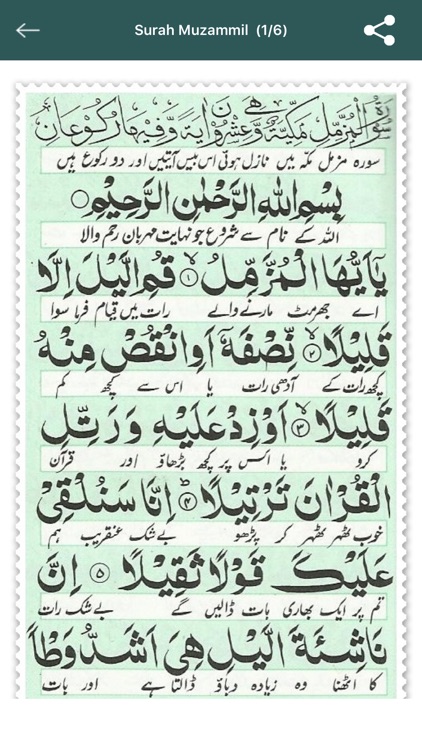 Surah Muzammil (1/6)
سُوْرَةُ الْمُزَّمِّلِ مَكِّيَّةٌ وَّهِيَ عِشْرُوْنَ اٰيَةً وَّفِيْهَا رُكُوْعَانِ
سورہ مزمل مکہ میں نازل ہوئی اس میں بیس آیتیں اور دو رکوع ہیں
بِسْمِ اللّٰهِ الرَّحْمٰنِ الرَّحِيْمِ
اللہ کے نام سے شروع جو نہایت مہربان رحم والا
يٰۤاَيُّهَا الْمُزَّمِّلُ ۙ ۱ قُمِ الَّيْلَ اِلَّا
اے جھرمٹ مارنے والے رات میں قیام فرما سوا
قَلِيْلًا ۙ ۲ نِّصْفَهٗۤ اَوِ انْقُصْ مِنْهُ
کچھ رات کے آدھی رات یا اس سے کچھ کم
قَلِيْلًا ۙ ۳ اَوْ زِدْ عَلَيْهِ وَرَتِّلِ
کرو یا اس پر کچھ بڑھاؤ اور قرآن
الْقُرْاٰنَ تَرْتِيْلًا ؕ ۴ اِنَّا سَنُلْقِيْ
خوب ٹھہر ٹھہر کر پڑھو بے شک عنقریب ہم
عَلَيْكَ قَوْلًا ثَقِيْلًا ۵ اِنَّ
تم پر ایک بھاری بات ڈالیں گے بے شک رات
نَاشِئَةَ الَّيْلِ هِيَ اَشَدُّ وَطْاً
کا اٹھنا وہ زیادہ دباؤ ڈالتا ہے اور بات